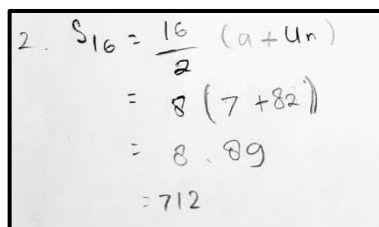 2. S₁₆ = 16/2 (a + Un)
= 8 (7 + 82)
= 8 . 89
= 712